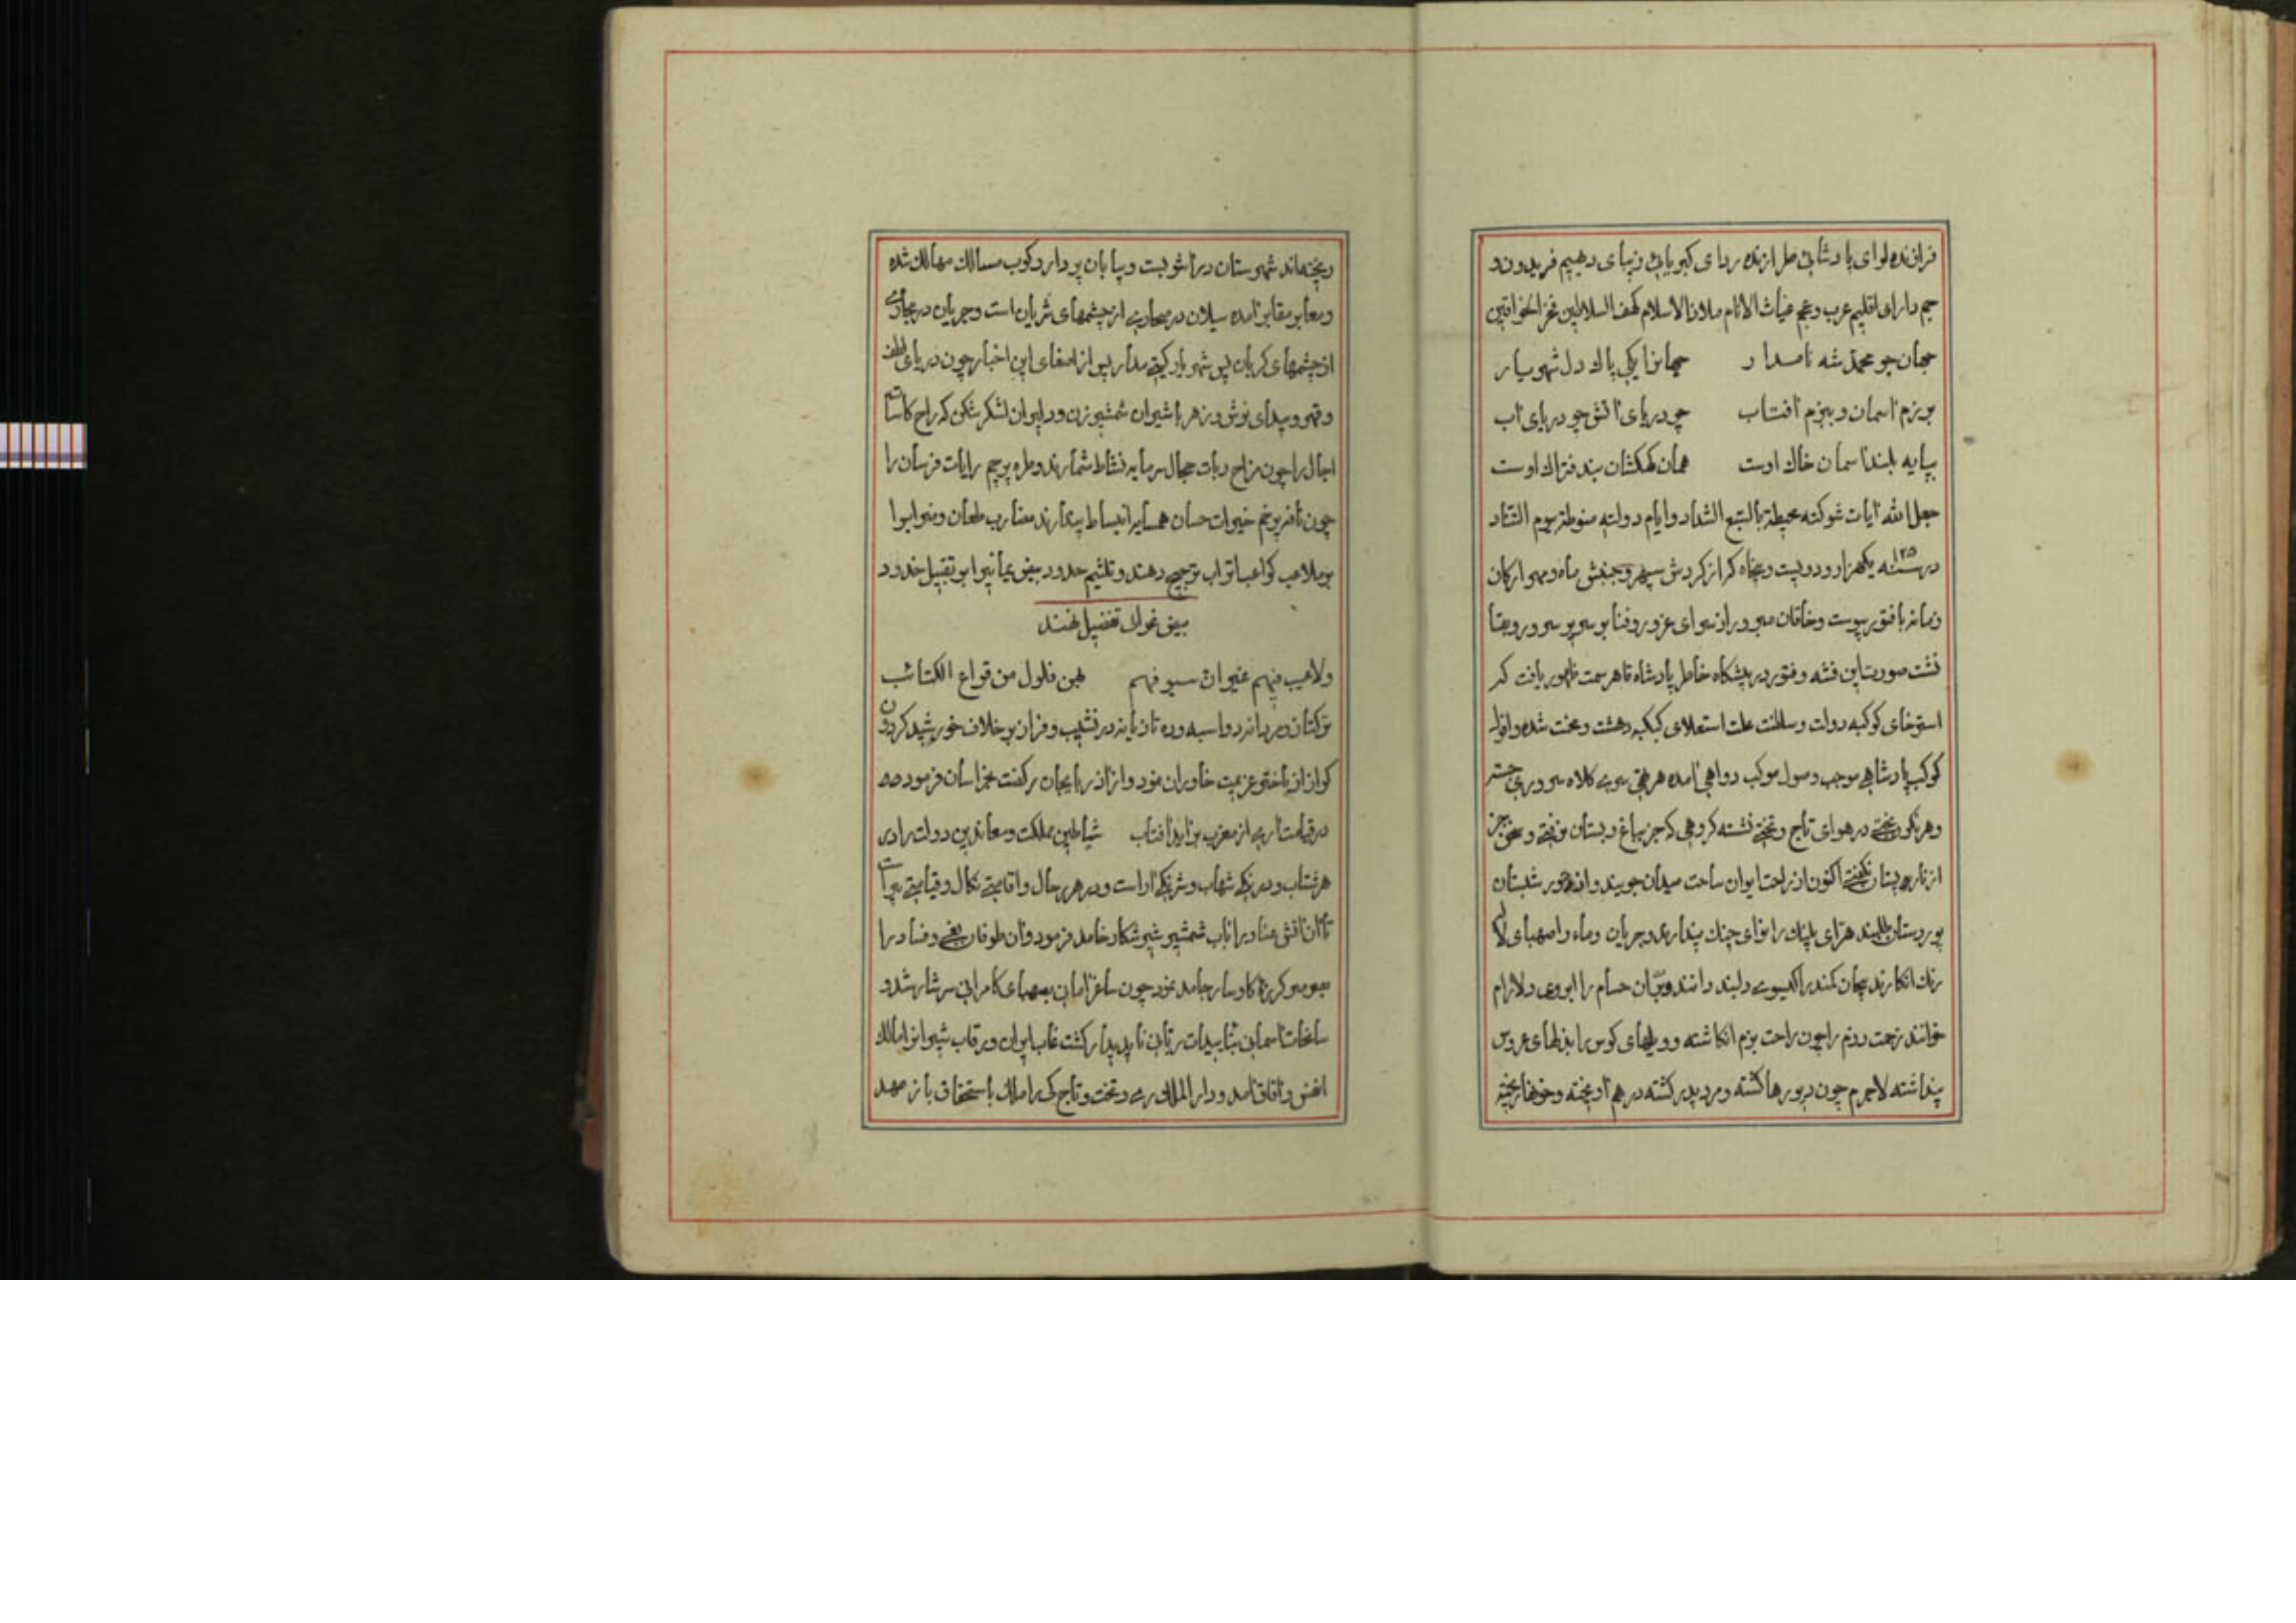 فرازنده لوای پادشائی طرازنده ردای کبریایی و زیبای دهیم فریدون و
جم دارای اقلیم عرب و عجم غیاث الانام ملاذ الاسلام کهف السلاطین فخر الخواقین
جهان جو محمد شه نامدار جهانرا یکی پاک دل شهریار
برزم آسمان و ببزم آفتاب چو دریای آتش چو دریای آب
بپایه بلند آسمان خاک اوست همان کهکشان بند فتراک اوست
جعل الله آیات شوکته محیطة بالسبع الشداد و ایام دولته منوطة بیوم التناد
در سنه ۱۲۵۰ یکهزار و دویست و پنجاه که از گردش سپهر و جنبش ماه و مهر ارکان
زمانه با فتور پیوست و خاقان مبرور از سرای غرور و فنا بر سریر سرور و بقا
نشست صورت این فتنه و فتور در پیشگاه خاطر پادشاه قاهر سمت ظهور یافت که
استرخای کوکبه دولت و سلطنت علت استعلای کبکبه دهشت و محنت شده و افول
کوکب پادشاهی موجب وصول موکب دواهی آمده هر بی سری کلاه سروری جسته
و هر نگون بختی در هوای تاج و تختی نشسته گروهی که جز بباغ و بستان نرفته و سخن جز
از نار پستان نگفته اکنون از راحت ایوان ساحت میدان جویند و از حور شبستان
پوردستان طلبند هرای پلنک را نوای چنک پندارند و جریان دماء را صهبای لاله
رنک انکارند پیچان کمند را گیسوی دلبند دانند و بران حسام را ابروی دلارام
خوانند زحمت رزم را چون راحت بزم انکاشته و ویلهای کوس را بذلهای عروس
پنداشته لاجرم چون پورها کشته و مرد پدر کشته درهم آویخته و خونها ریخته
ریخته‌اند شهرستان در آشوبست و بیابان پر دار و کوب مسالک مهالک شده
و معابر مقابر آمده سیلان در صحاری از چشمهای شریان است و جریان در مجاری
از چشمهای گریان پس شهریار گیتی مدار پس از اصغای این اخبار چون دریای لطف
و قهر و بیدای نوش و زهر با شیران شمشیر زن و دلیران لشکر شکن که راح کاسات
آجال را چون مزاح ربات حجال سرمایه نشاط شمارند و طره پرچم رایات فرسان را
چون نافه پرخم خیرات حسان همسایه انبساط پندارند مضارب طعان و ضراب را
بر ملاعب کواعب اتراب ترجیح دهند و تلثیم حدود بیض یمانی را بر تقبیل خدود
بیض غوانی تفضیل نهند
ولا عیب فیهم غیر ان سیوفهم بهن فلول من قراع الکتائب
ترکتاز و مردانه رو اسبه و ره تازیانه در نشیب و فراز بر خلاف خورشید گردون
کراز از باختر عزیمت خاوران نمود و از آذربایجان رکضت بخراسان فرمود مه
در قیامت آری از مغرب برآید آفتاب شیاطین مملکت و معاندین دولت را در
هر شتاب و درنکی شهاب و شرنکی آراست و در هر رحال و اقامتی نکال و قیامتی پیراست
تا آن آتش عناد را باب شمشیر شیر شکار خامد فرمود و آن طوفان بغی و فساد را
بصرصر گرزه گاوسار جامد نمود چون ساغر امانی بصهبای کامرانی سرشار شد و
سانحات آسمانی بتاییدات ربانی نا پدیدار گشت غاب ایران و رقاب شیران را مالک
انفس و آفاق آمد و دار الملک ری و تخت و تاج کی را ملک باستحقاق باز مهد